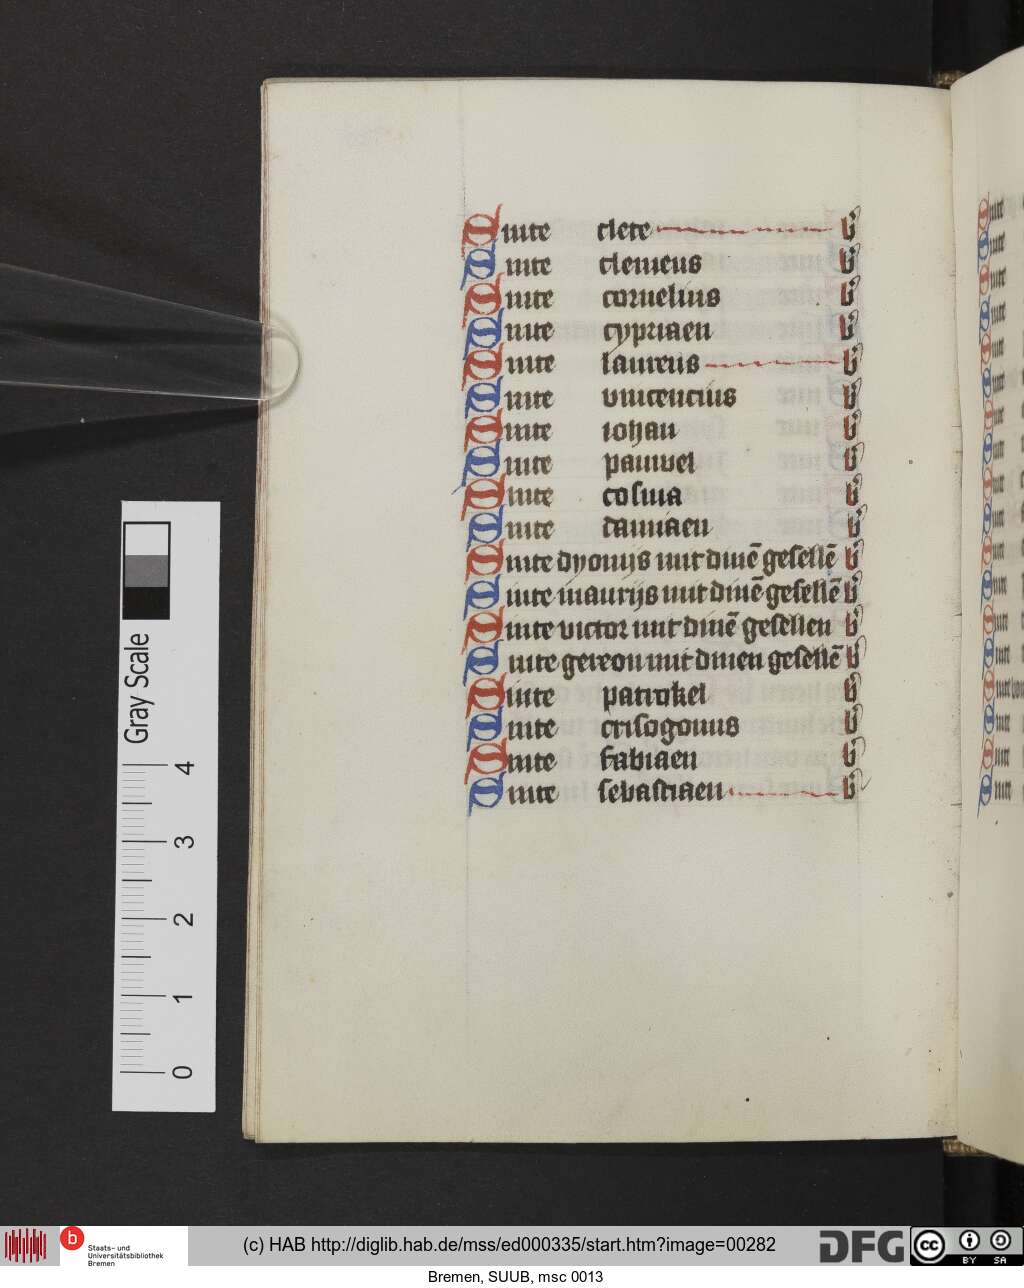 Sinte clete b
Sinte clemens b
Sinte cornelius b
Sinte cypriaen b
Sinte laurens b
Sinte vincencius b
Sinte iohan b
Sinte pauwel b
Sinte cosma b
Sinte damiaen b
Sinte dyonijs mit dinē gesellē b
Sinte maurijs mit dinē gesellē b
Sinte victor mit dinē gesellen b
Sinte gereon mit dinen gesellē b
Sinte patrokel b
Sinte crisogonus b
Sinte fabiaen b
Sinte sebastiaen b
Gray Scale
4
3
2
1
0
b
Staats- und
Universitätsbibliothek
Bremen
(c) HAB http://diglib.hab.de/mss/ed000335/start.htm?image=00282
DFG
cc
BY SA
Bremen, SUUB, msc 0013